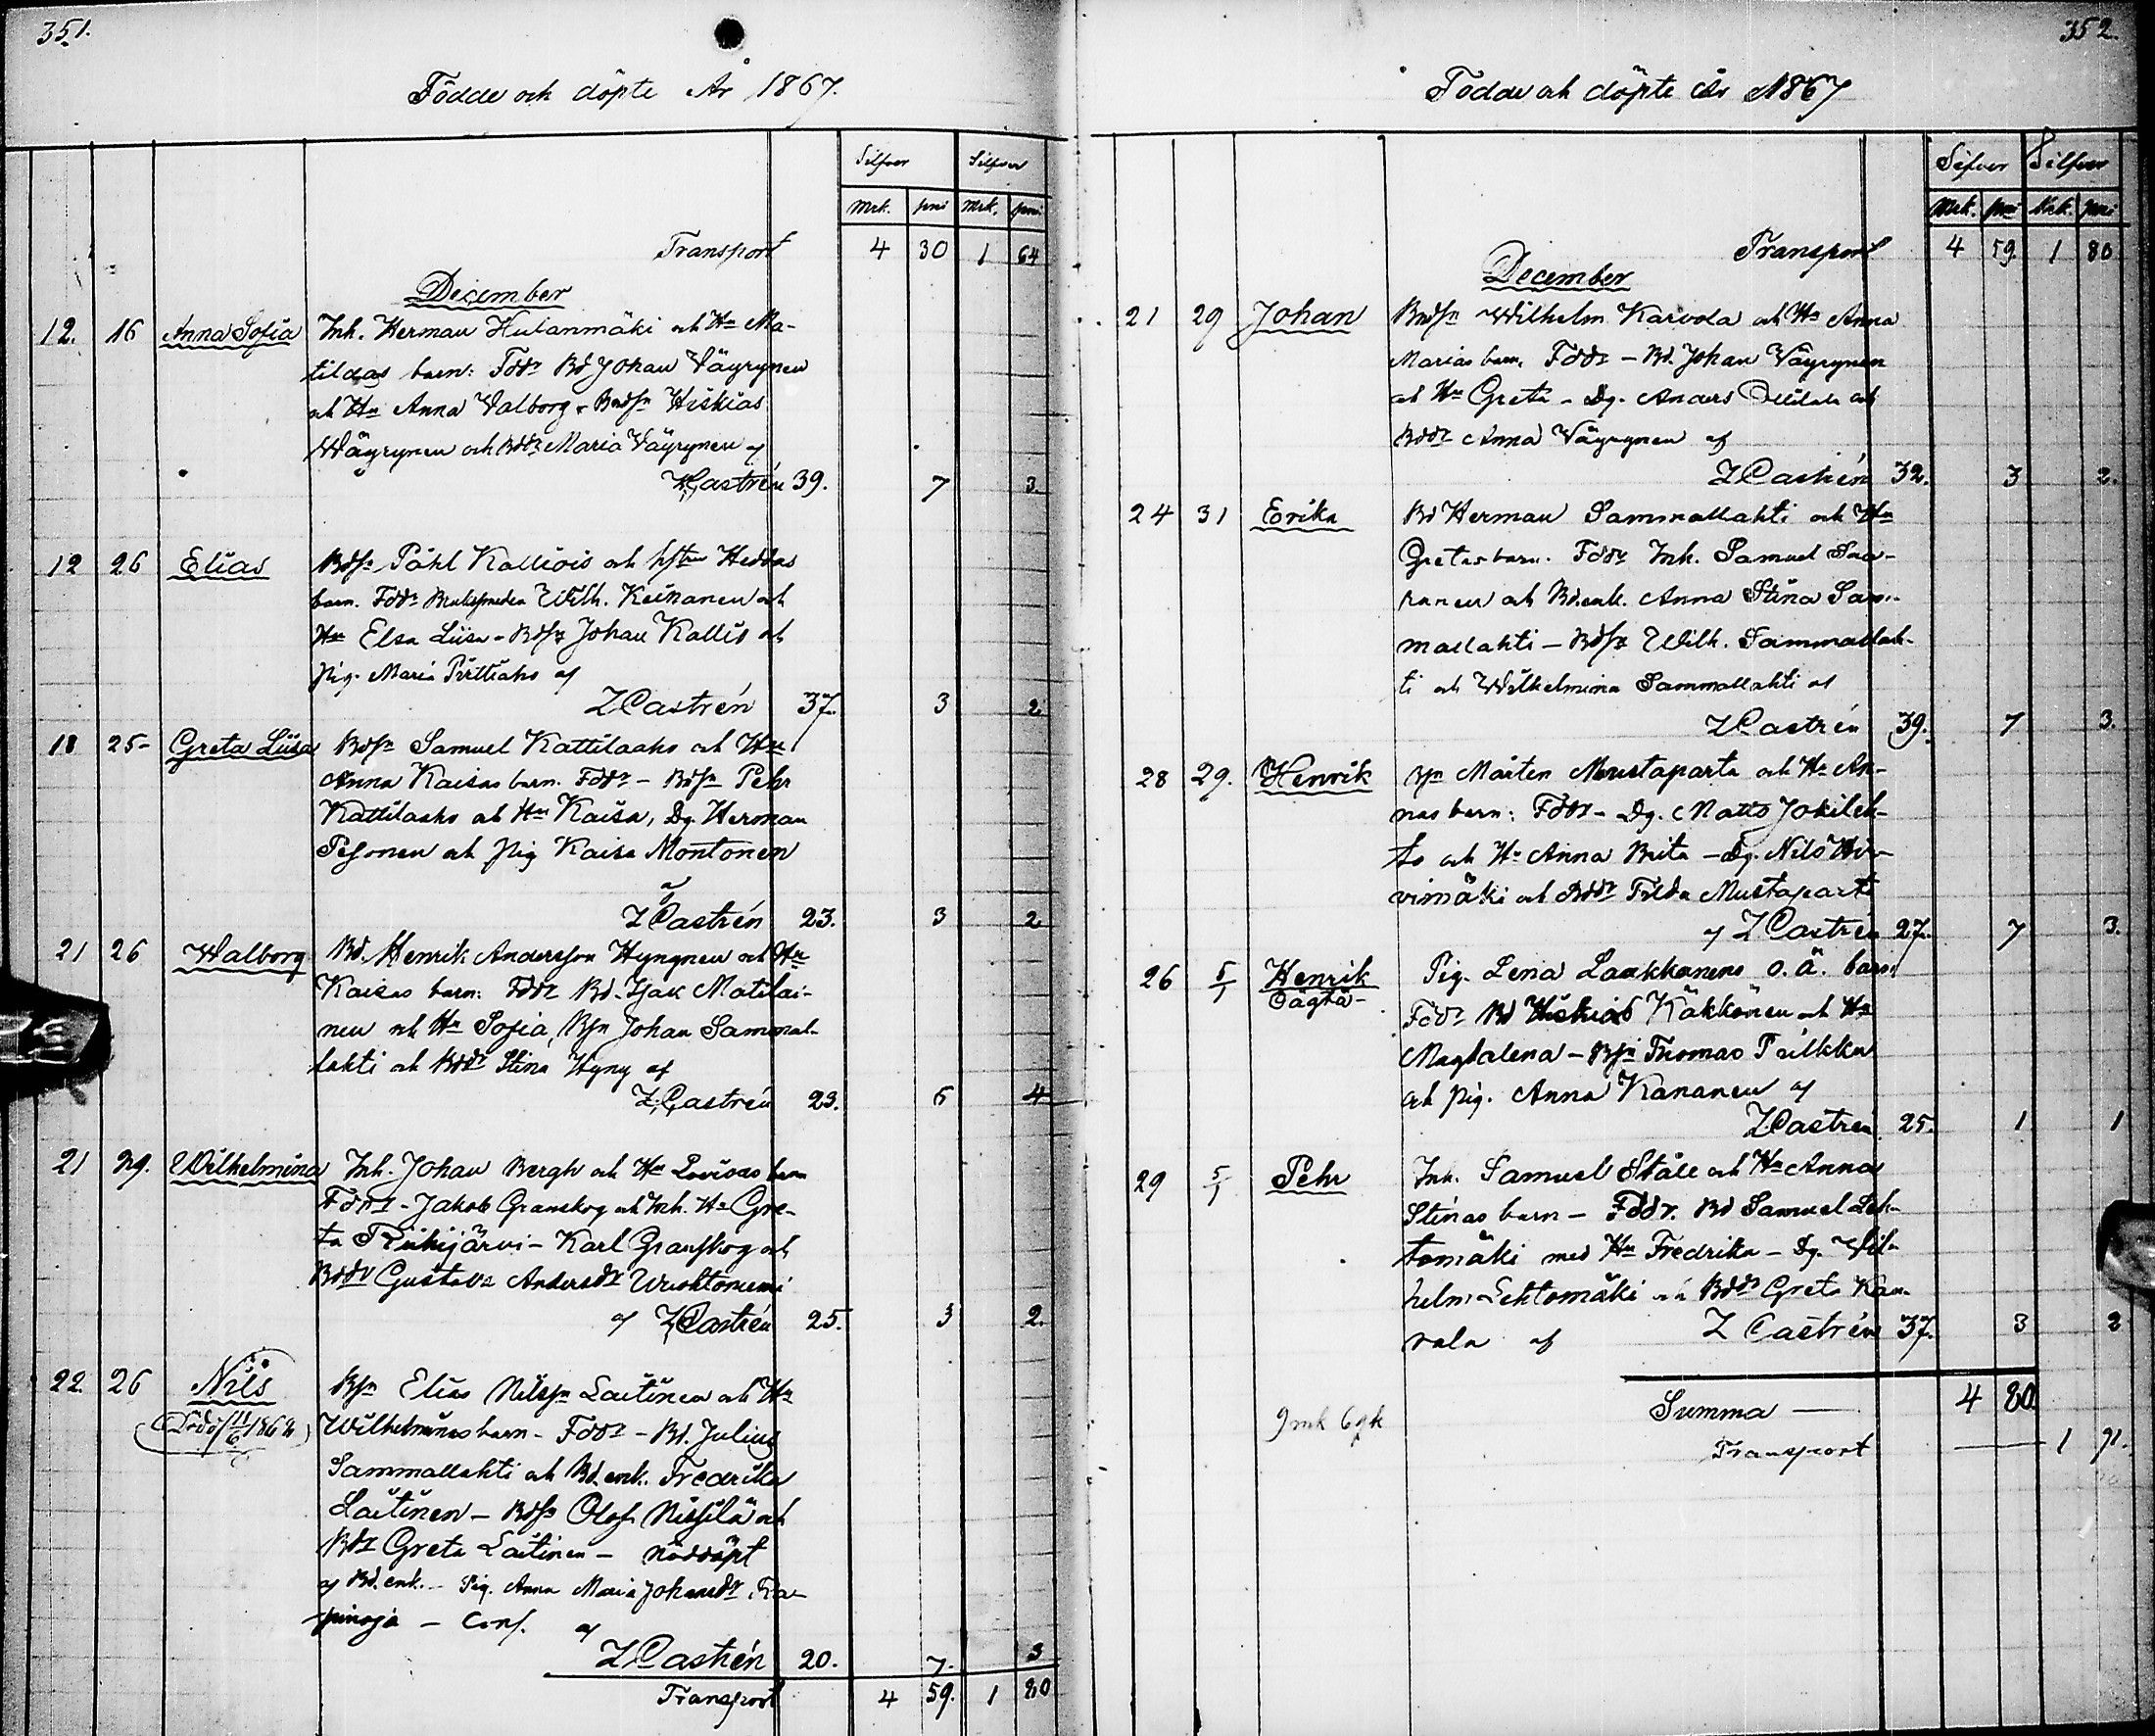 351.
Födde och döpte År 1867.
Silfver Silfver
Mrk. pni Mrk. pni
Transport 4 30 1 64
December
12. 16 Anna Sofia Inh. Herman Hulanmäki och Hu Ma-
tildas barn: Fddr Bd Johan Väyrynen
och Hu Anna Valborg - Bndsn Hiskias
Wäyrynen och Bddr Maria Väyrynen af
Castrén 39. 7 3.
12 26 Elias Bdsn Påhl Kalliois och hstru Heddas
barn. Fddr Bruksmeden Wilh. Keinanen och
Hu Elsa Liisa - Bdsn Johan Kallio och
pig. Maria Pirttiaho af
Z Castrén 37. 3 2
18 25- Greta Liisa Bdsn Samuel Kattilaaho och Hu
Anna Kaisas barn. Fddr - Bdsn Pehr
Kattilaaho och Hu Kaisa, Dg. Herman
Pesonen och pig Kaisa Montonen
af
Z Castrén 23. 3 2
21 26 Walborg Bd. Henrik Andersson Hyngnen och Hu
Kaisas barn: Fddr Bd. Isak Matilai-
nen och Hu Sofia, Bsn Johan Sammal-
lahti och Bddr Stina Hyny af
Z. Castrén 23. 6 4
21 29. Wilhelmina Inh. Johan Bergh och Hu Lovisas barn
Fddr - Jakob Granskog och Inh. Hu Gre-
ta Riihijärvi - Karl Granskog och
Bddr Gustava Andersdr Wuoktoniemi
af Z Castrén 25. 3 2.
22. 26 Nils Bsn Elias Nilsson Laitinen och Hu
(Död 11/6 1868) Wilhelminas barn - Fddr - Bd. Julius
Sammallahti och Bd. enk. Fredrika
Laitinen - Bdsn Olof Nissilä och
Bdr Greta Laitinen - nöddöpt
af Bd. enk. - Pig. Anna Maria Johansdr
pinoja - conf. af
Z Castrén 20. 7. 3
Transport 4 59. 1 80
352.
Födde och döpte År 1867
Silfver Silfver
Mrk. pni Mrk. pni
Transport 4 59. 1 80
December
21 29 Johan Bndsn Wilhelm Karvola och Hu Anna
Marias barn. Fddr - Bd. Johan Väyrynen
och Hu Greta - Dg. Anders och
Bddr Anna Väyrynen af
Z Castrén 32. 3 2.
24 31 Erika Bd Herman Sammallahti och Hu
Gretas barn. Fddr Inh. Samuel Saa-
ranen och Bd. enk. Anna Stina Sam-
mallahti - Bdsn Wilh. Sammallah-
ti och Wilhelmina Sammallahti af
Z Castrén 39. 7 3.
28 29. Henrik Bsn Mårten Mustaparta och Hu An-
nas barn: Fddr - Dg. Matts Jokileh-
to och Hu Anna Brita - Dg. Nils Hir-
vimäki och Bddr Frida Mustaparta
af Z Castrén 27. 7 3.
26 5/1 Henrik Pig. Lena Laakkonens o. ä. barn
Oägta- Fddr Bd Hiskias Käkkönen och Hu
Magdalena - Bsn Thomas Piilkka
och pig. Anna Kananen af
Z Castrén 25. 1 1
29 5/1 Pehr Inh. Samuel Ståle och Hu Anna
Stinas barn - Fddr. Bd Samuel Leh-
tomäki med Hu Fredrika - Dg. Wil-
helm Lehtomäki och Bddr Greta Kan-
nala af Z Castrén 37. 3 2
9 mk 6 pk Summa 4 80.
Transport 1 91.